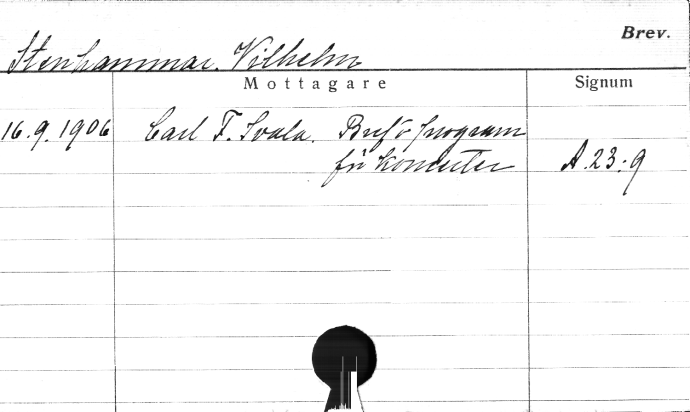 Brev.
Stenhammar. Vilhelm
Mottagare Signum
16.9.1906 Carl F. Svala. Bref o program
för konserter A.23:9